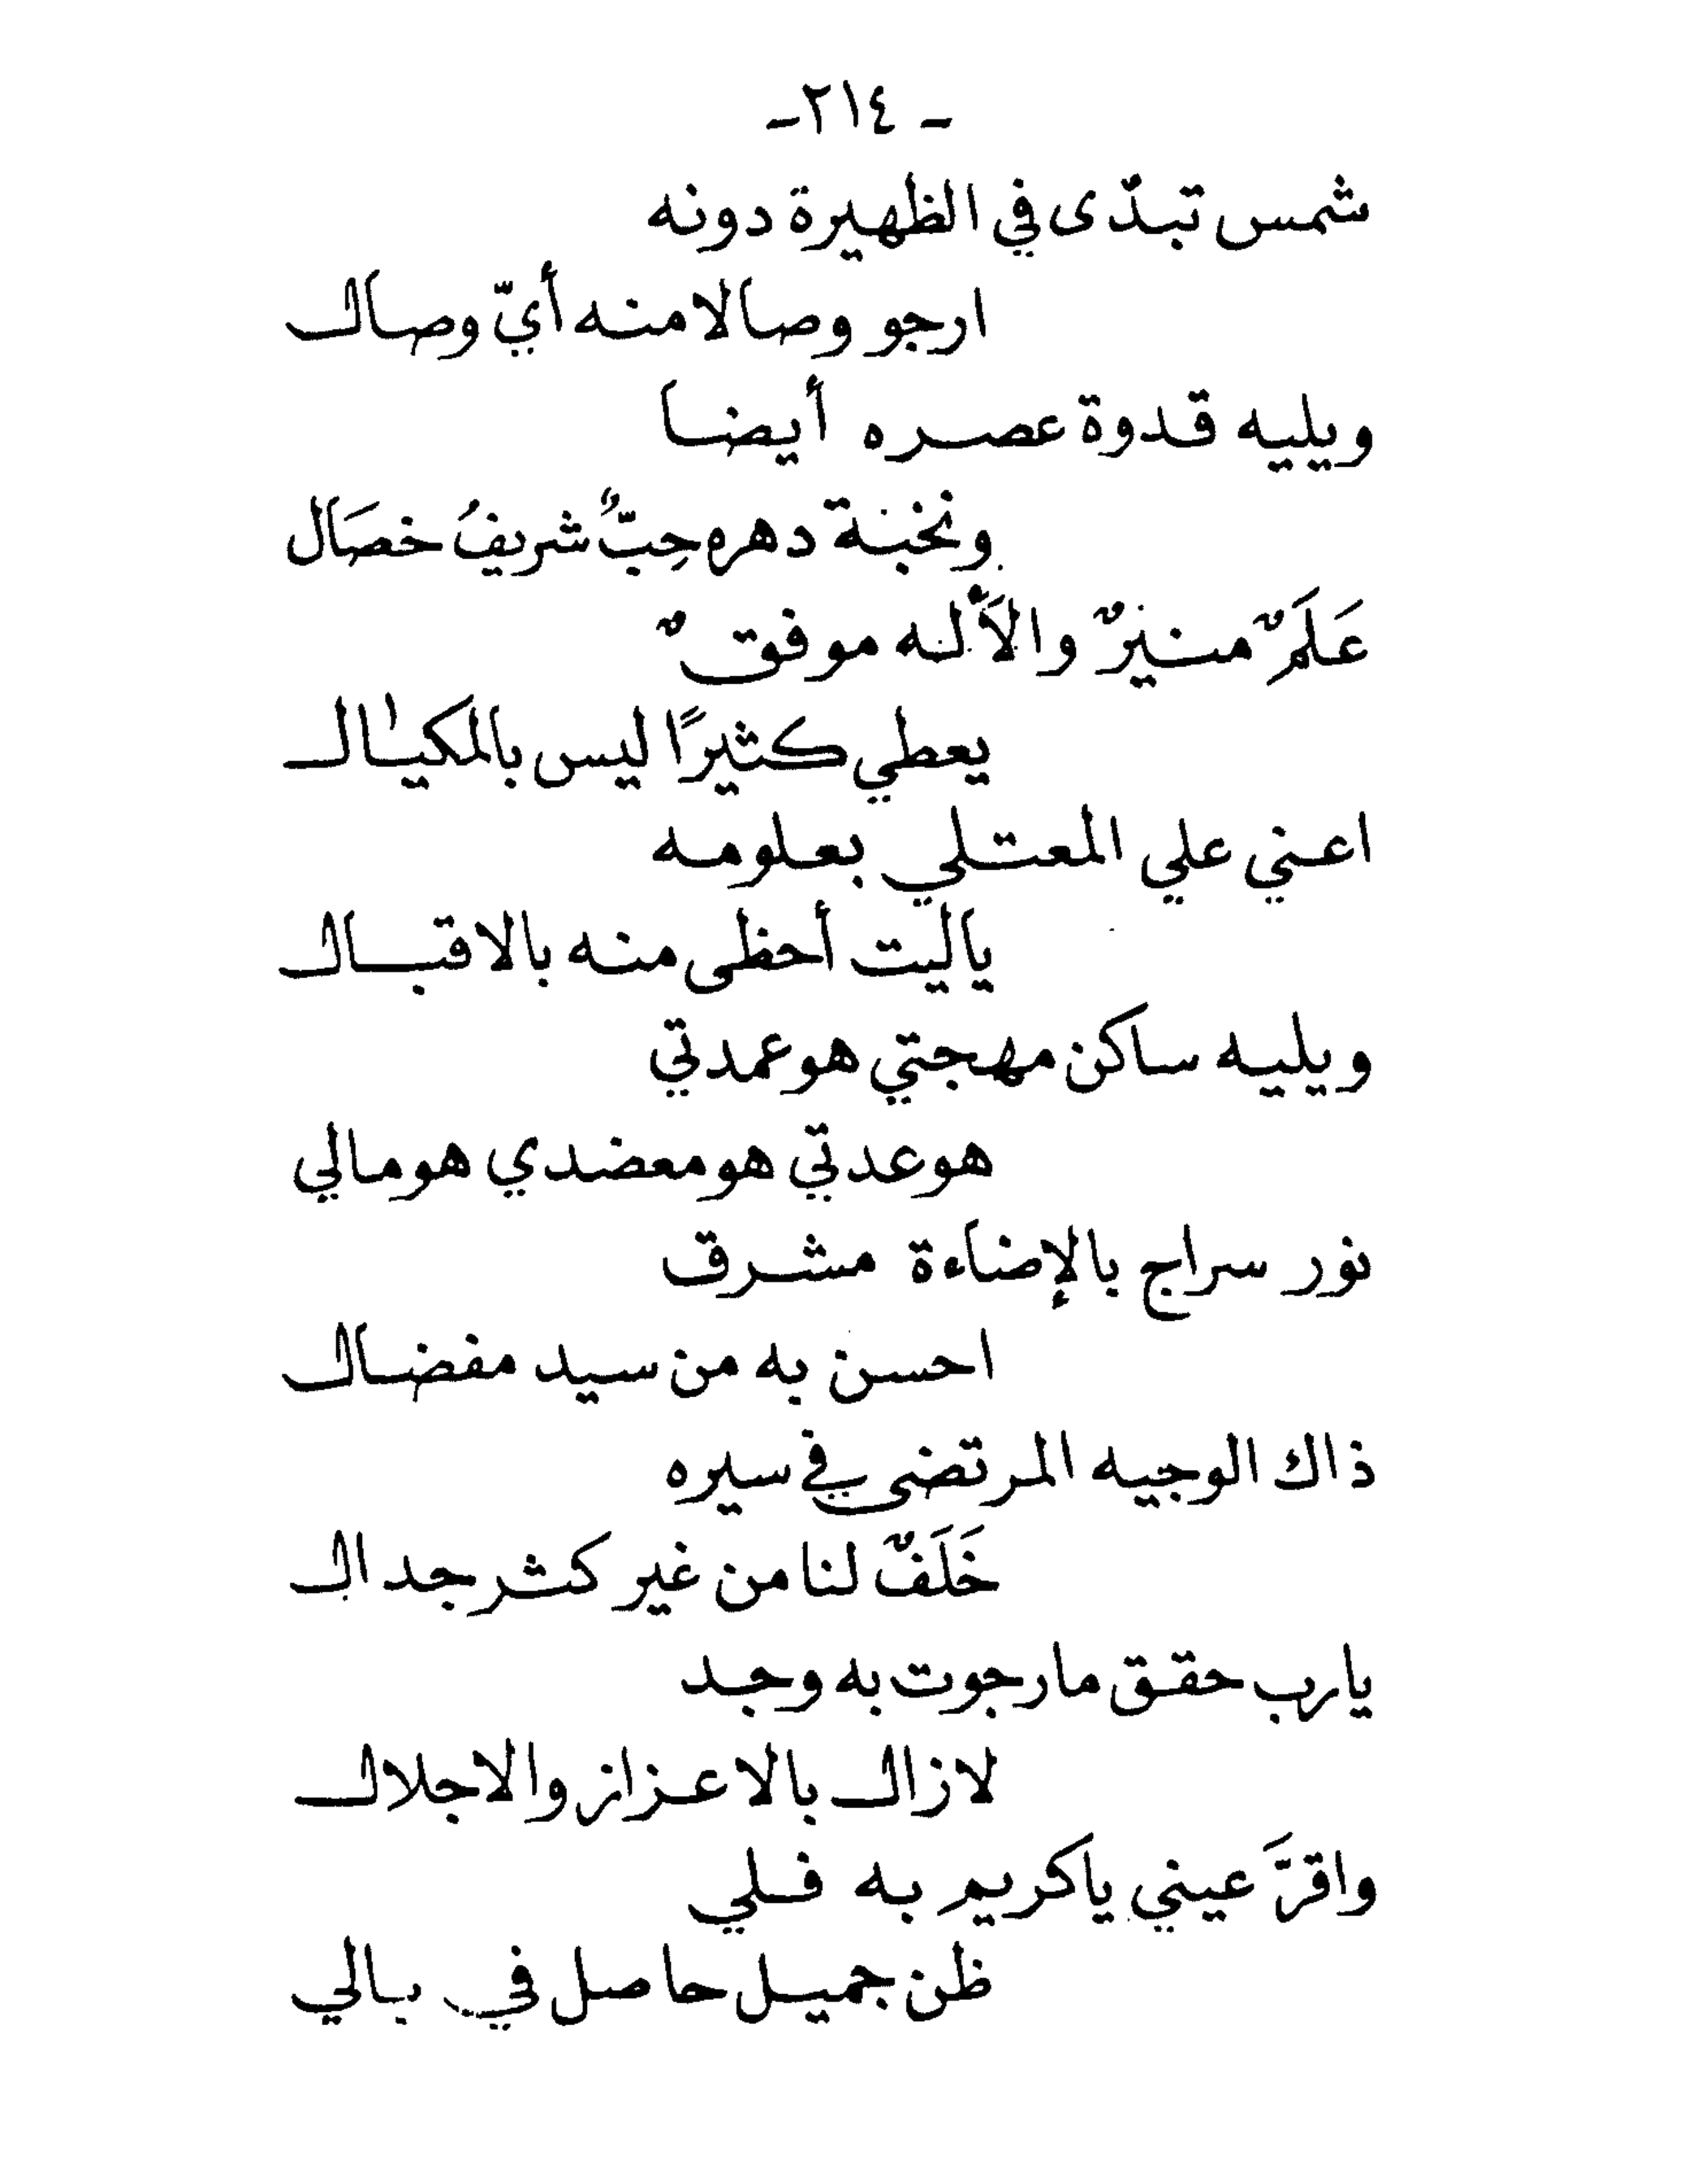 - ٢١٤ -
شمس تبدّى في الظهيرة دونه
ارجو وصالا منه أيّ وصال
ويليه قدوة عصره أيضا
ونخبة دهره حِبٌّ شريفُ خصَال
عَلَمٌ منيرٌ والأله موفقٌ
يعطي كثيرًا ليس بالمكيال
اعني علي المعتلي بعلومه
ياليت أحظى منه بالاقبال
ويليه ساكن مهجتي هو عمدتي
هو عدتي هو معضدي هو مالي
نور سراج بالإضاءة مشرق
احسن به من سيد مفضال
ذاك الوجيه المرتضى في سيره
خَلَفٌ لنا من غير كثر جدال
يارب حقق ما رجوت به وجد
لازال بالاعزاز والاجلال
واقرَّ عيني ياكريم به فلي
ظن جميل حاصل في بالي